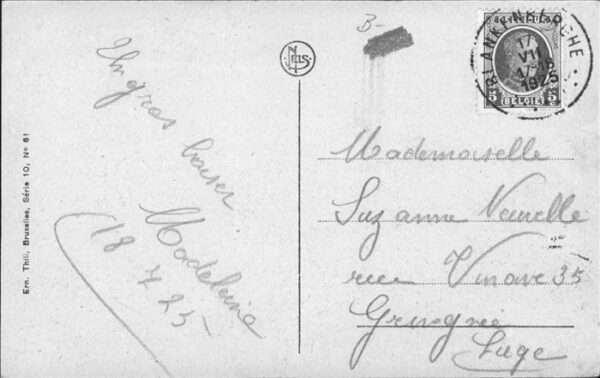 Un gros baiser
Madeleine
18 7 25
Ern. Thill, Bruxelles, Série 10, No 61
NELS
B-
BLANKENBERGHE
17
VII
1925
5 BELGIË 5
Mademoiselle
Suzanne
rue Vinave 35
Grivegnée
Liège